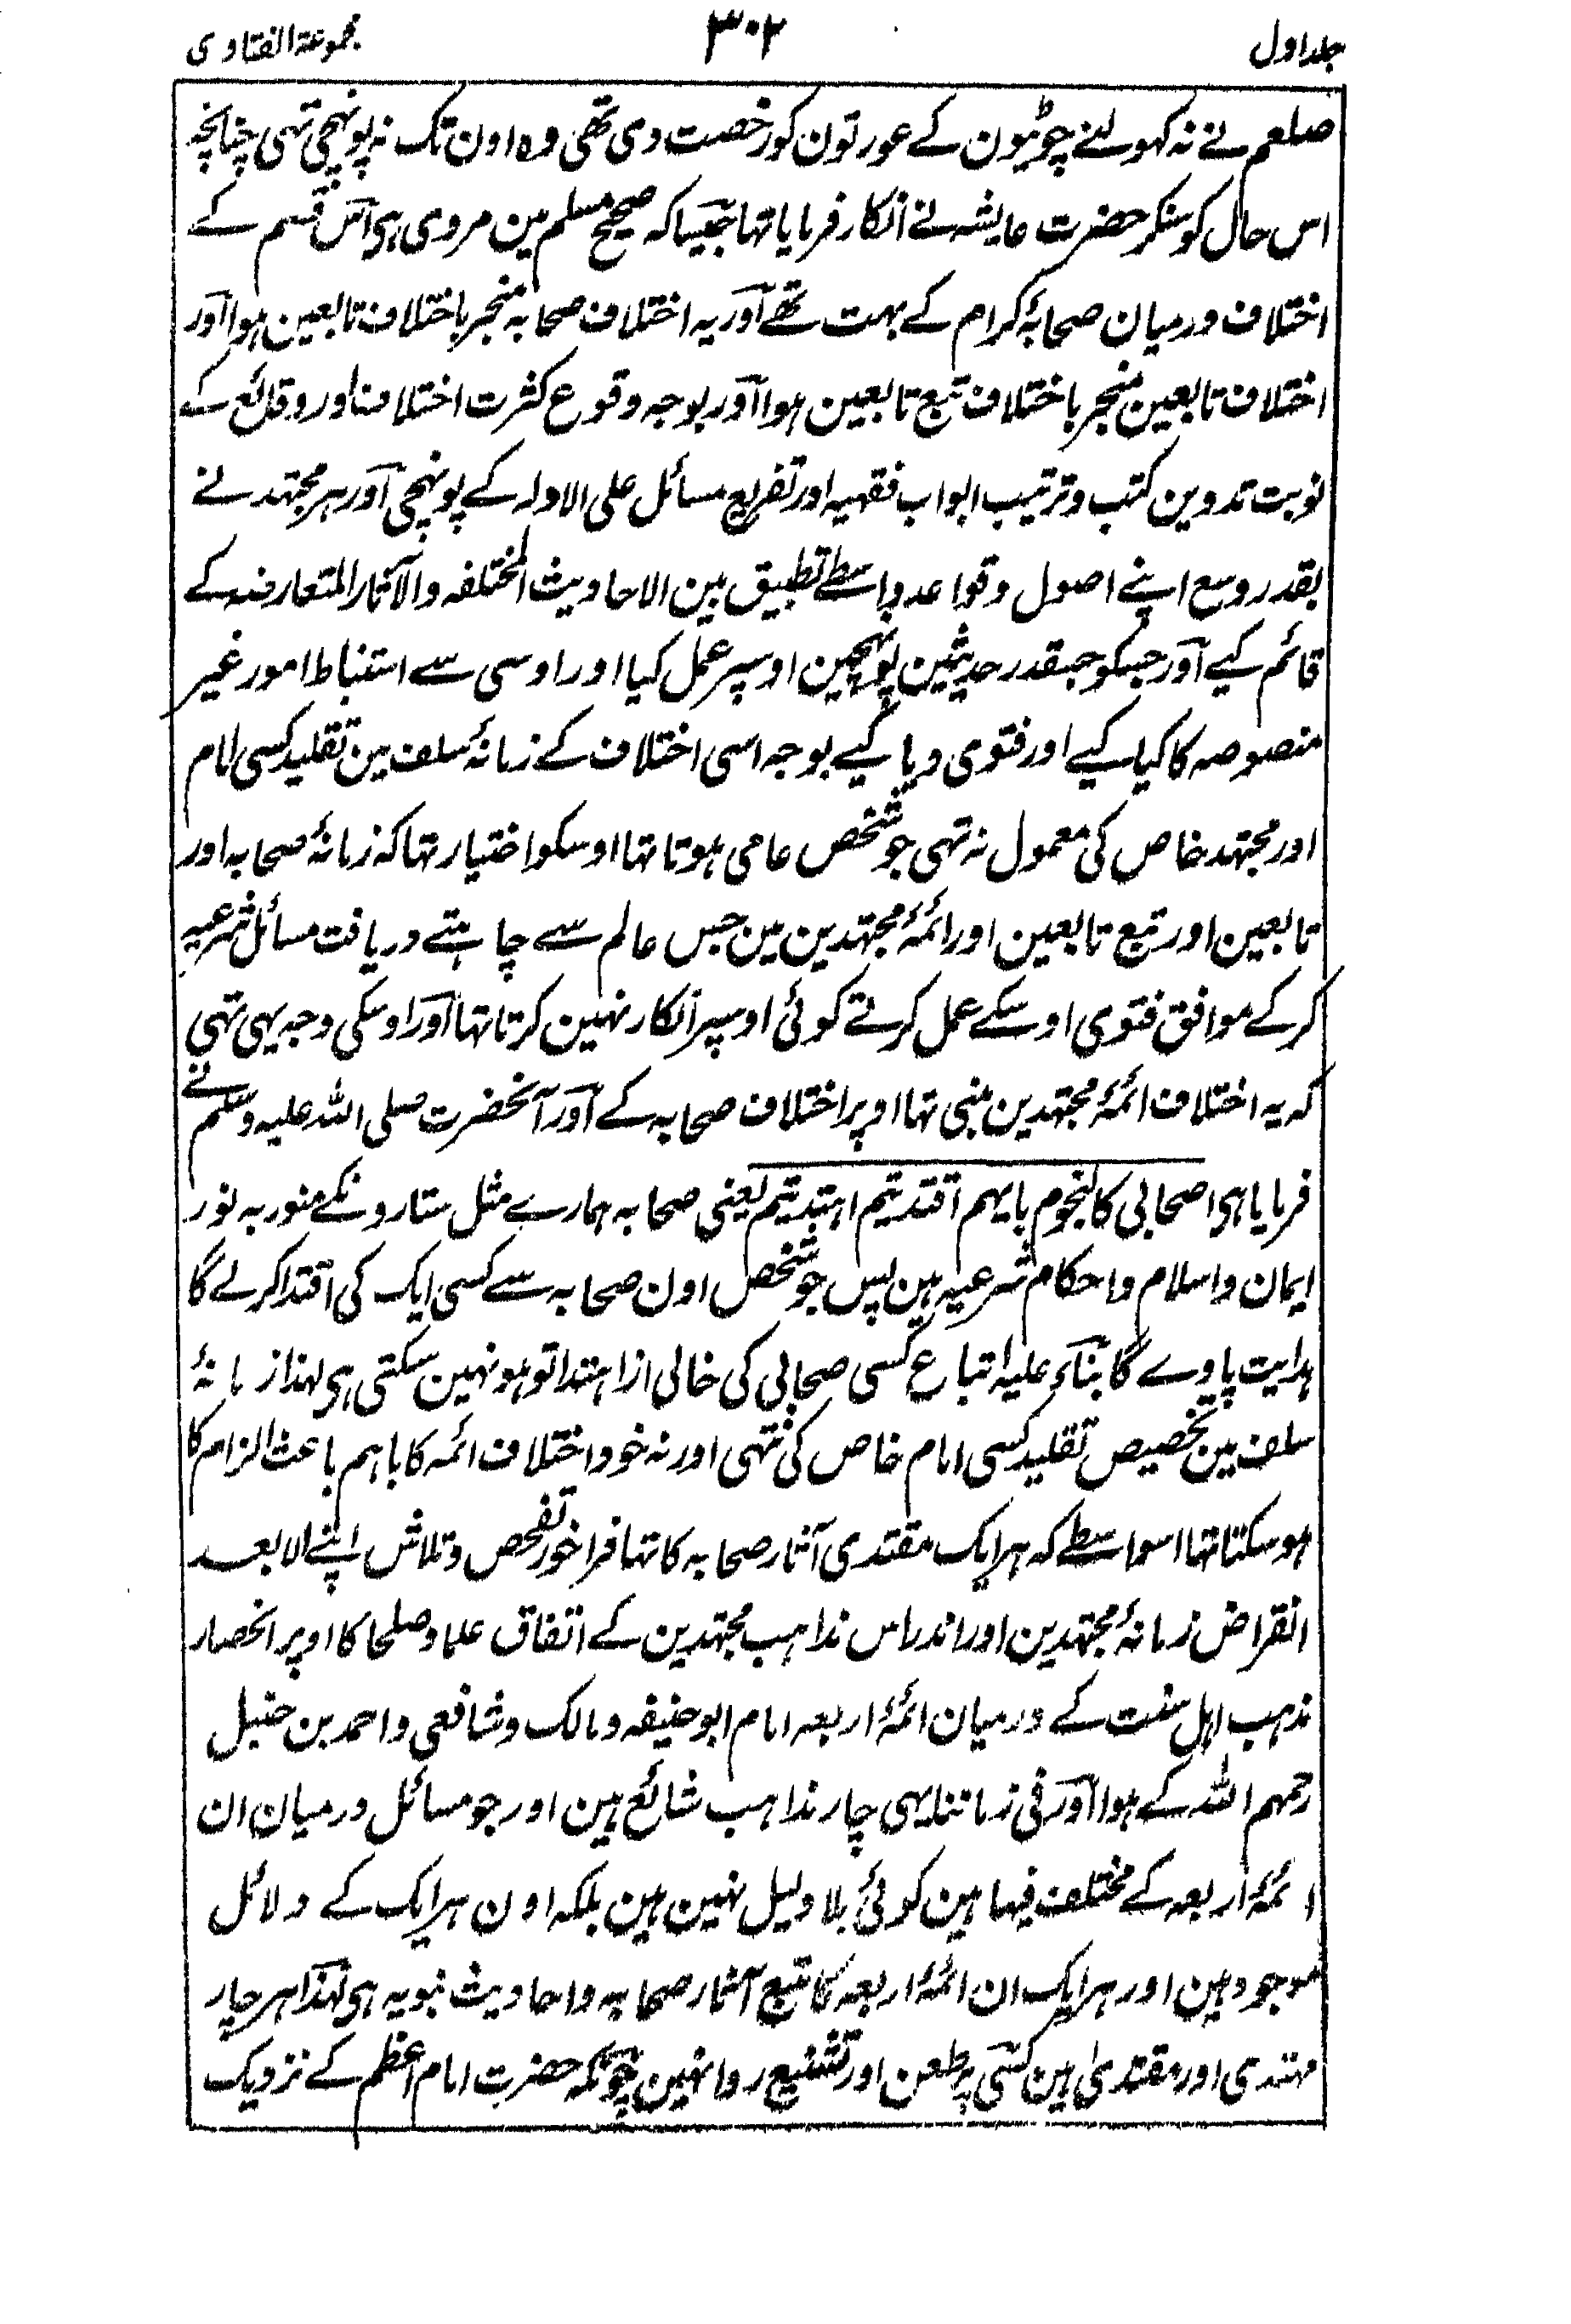 جلد اول
٣٠٢
مجموعۃ الفتاوی
صلعم نے نہ کہولنے چوٹیون کے عورتون کو رخصت دی تھی وہ اون تک نہ پونہچی تہی چنانچہ
اس حال کو سنکر حضرت عایشہ نے انکار فرمایا تہا جیسا کہ صحیح مسلم مین مروی ہی اس قسم کے
اختلاف درمیان صحابۂ کرام کے بہت تھے اور یہ اختلاف صحابہ منجر باختلاف تابعین ہوا اور
اختلاف تابعین منجر باختلاف تبع تابعین ہوا اور بوجہ وقوع کثرت اختلاف اور وقائع کے
نوبت تدوین کتب و ترتیب ابواب فقہیہ اور تفریع مسائل علی الادلہ کے پونہچی اور ہر مجتہد نے
بقدر وسع اپنے اصول و قواعد واسطے تطبیق بین الاحادیث المختلفہ والآثار المتعارضہ کے
قائم کیے اور جسکو جسقدر حدیثین پونہچین اوسپر عمل کیا اور اوسی سے استنباط امور غیر
منصوصہ کا کیا کیے اور فتوی دیا کیے بوجہ اسی اختلاف کے زمانۂ سلف مین تقلید کسی امام
اور مجتہد خاص کی معمول نہ تہی جو شخص عامی ہوتا تہا اوسکو اختیار تہا کہ زمانۂ صحابہ اور
تابعین اور تبع تابعین اور ائمۂ مجتہدین مین جس عالم سے چاہتے دریافت مسائل شرعیہ
کرکے موافق فتوی اوسکے عمل کرتے کوئی اوسپر انکار نہین کرتا تہا اور اوسکی وجہ یہی تہی
کہ یہ اختلاف ائمۂ مجتہدین مبنی تہا اوپر اختلاف صحابہ کے اور آنحضرت صلی اللہ علیہ وسلم نے
فرمایا ہی اصحابی کالنجوم بایہم اقتدیتم اہتدیتم یعنی صحابہ ہمارے مثل ستارونکے منور بہ نور
ایمان و اسلام و احکام شرعیہ ہین پس جو شخص اون صحابہ سے کسی ایک کی اقتدا کرلے گا
ہدایت پاوے گا بناءً علیہ اتباع کسی صحابی کی خالی از اہتدا تو ہو نہین سکتی ہی لہذا زمانۂ
سلف مین تخصیص تقلید کسی امام خاص کی نتہی اور نہ خود اختلاف ائمہ کا باہم باعث الزام کا
ہوسکتا تہا اسواسطے کہ ہر ایک مقتدی آثار صحابہ کا تہا فراخور تفحص و تلاش اپنے الا بعد
انقراض زمانۂ مجتہدین اور اندراس مذاہب مجتہدین کے اتفاق علما و صلحا کا اوپر انحصار
مذہب اہل سنت کے درمیان ائمۂ اربعہ امام ابوحنیفہ و مالک و شافعی و احمد بن حنبل
رحمہم اللہ کے ہوا اور فی زماننا یہی چار مذاہب شائع ہین اور جو مسائل درمیان ان
ائمۂ اربعہ کے مختلف فیہا ہین کوئی بلا دلیل نہین ہین بلکہ اون ہر ایک کے دلائل
موجود ہین اور ہر ایک ان ائمۂ اربعہ کا متبع آثار صحابہ و احادیث نبویہ ہی لہذا ہر چار
مہتدی اور مقتدیٰ ہین کسی پر طعن اور تشنیع روا نہین چونکہ حضرت امام اعظم کے نزدیک